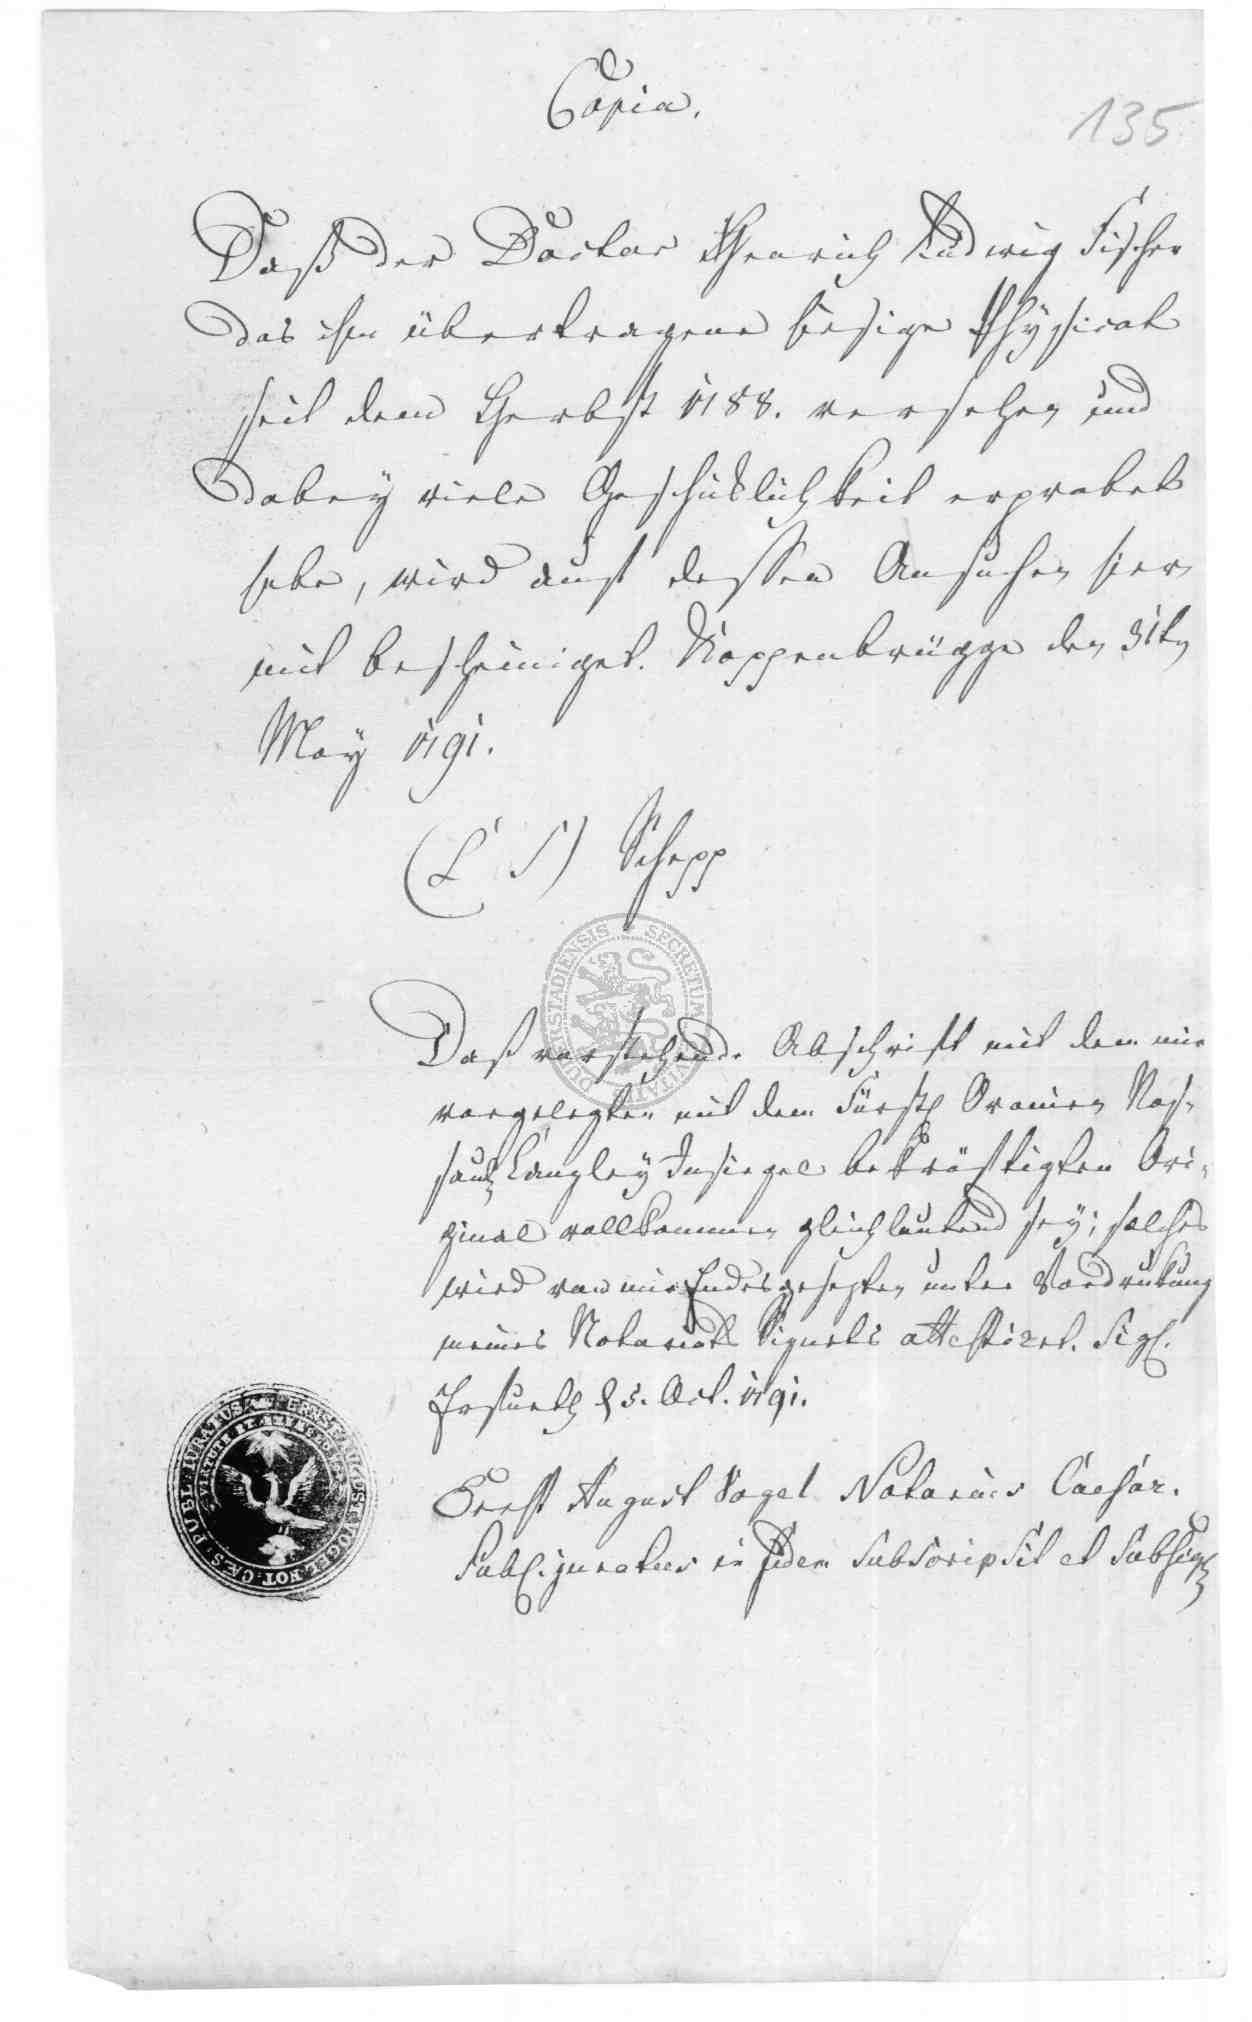 Copia.
135
Daß der Doctor Henrich Ludwig Fischer
das ihm übertragene hiesige Physicat
seit dem Herbst 1788. versehen und
dabey viele Geschiklichkeit erprobet
habe, wird auf dessen Ansuchen hier
mit bescheiniget. Koppenbrügge den 31tn
May 1791.
(L S) Schepp
DUDERSTADIENSIS SECRETUM CIVITATIS
Daß vorstehende Abschrift mit dem mir
vorgelegten mit dem Fürstl Oranien Nas-
sauisch Canzley Insiegel bekräftigten Ori-
ginal vollkommen gleichlautend sey; solches
wird von mir Endesgesezten unter Vordrukung
meines Notariats Signets attestiret. Sigl.
d 5. Oct. 1791.
Ernst August Vogel Notarius Caesar.
in fidem subscripsit et subsig
ERNST AUGUST VOGEL NOT. CAES. PUBL. IURATUS
VIRTUTE ET